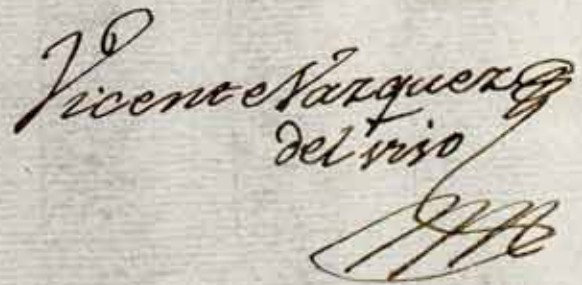 Vicente Vazquez
del viso